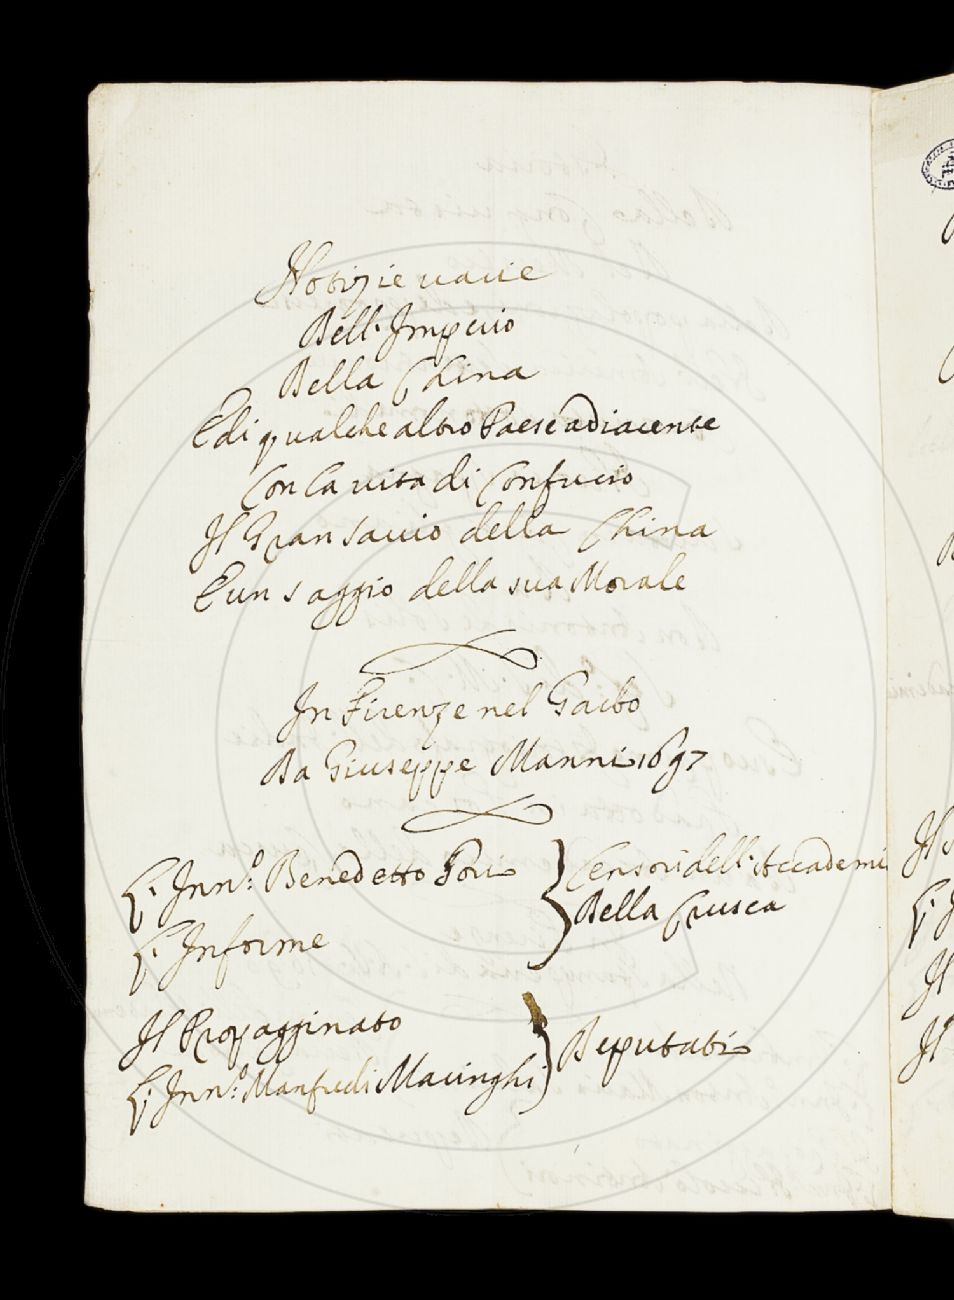 Notizie varie
Dell' Imperio
Della China
E di qualche altro Paese adiacente
Con la vita di Confucio
Il Gran Savio della China
E un saggio della sua Morale
In Firenze nel Garbo
Da Giuseppe Manni 1697
L' Inn.º Benedetto Gori
Censori dell' Accademi
Della Crusca
L' Informe
Il Propagginato
Deputati
L' Inn.º Manfredi Macinghi